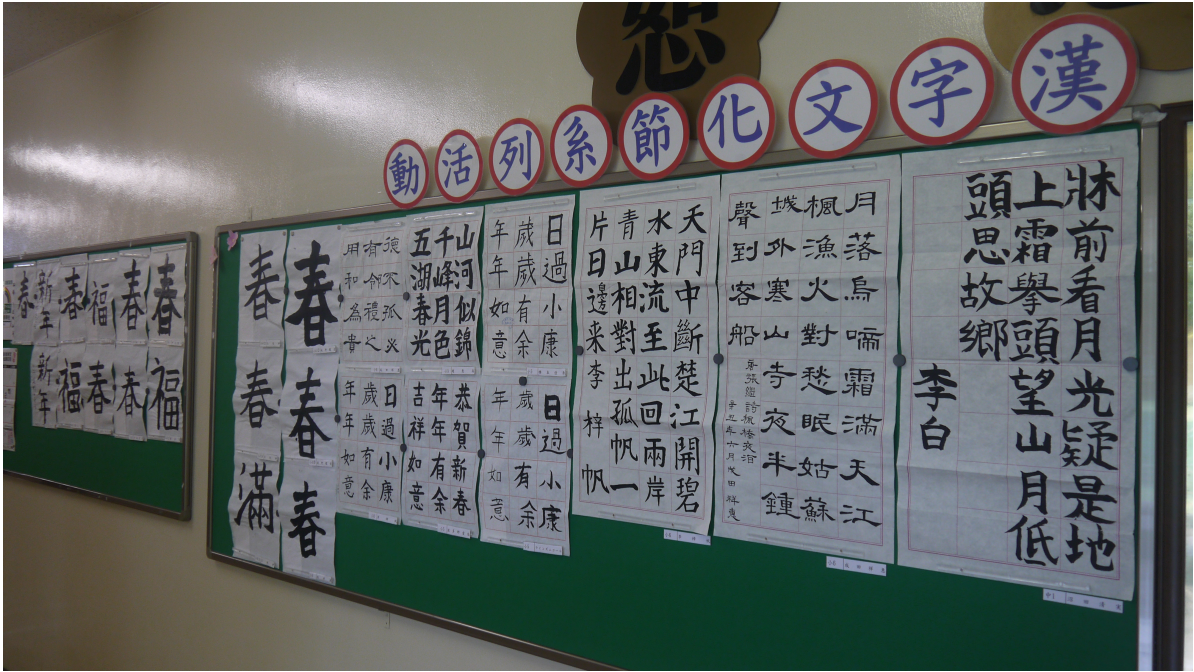 恕
漢字文化節系列活動
牀前看月光疑是地
上霜舉頭望山月低
頭思故鄉
李白
月落烏啼霜滿天江
楓漁火對愁眠姑蘇
城外寒山寺夜半鍾
聲到客船
唐張繼詩楓橋夜泊
天門中斷楚江開碧
水東流至此回兩岸
青山相對出孤帆一
片日邊来 李梓帆
日過小康
歲歲有余
年年如意
日過小康
歲歲有余
年年如意
山河似錦
千峰月色
五湖春光
恭賀新春
年年有余
吉祥如意
德不孤必
有鄰禮之
用和為貴
日過小康
歲歲有余
年年如意
春
春
春
春
春
滿
春
春
福
春
新年
春
福
春
春
福
新年